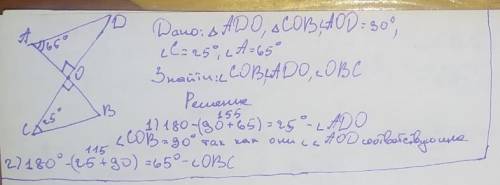 A
D
65°
O
25°
C
B
Дано: △ADO, △COB, ∠AOD = 90°,
∠C = 25°, ∠A = 65°
Знайти: ∠COB, ∠ADO, ∠OBC
Решение
155
1) 180 - (90 + 65) = 25° - ∠ADO
∠COB = 90° так как они с ∠AOD соответствующие
115
2) 180° - (25 + 90) = 65° - ∠OBC